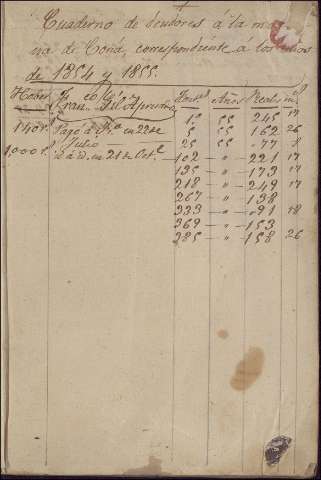 Cuaderno de deudores á la ma-
de Coña, correspondiente á los años
de 1854 y 1855.
Haver Años Reales ms
Fran.co Gil Aprunio
1º 55 245 17
140 r.s Pagó á en 22 de Julio 5 55 162 26
25 55 -77 8
1,000 r.s á d. en 21 de Oct.e 102 - " - 221 17
135 - " - 173 17
218 - " - 249 17
267 - " - 138
333 - " - 091 18
369 - " - 153
385 - " - 158 26